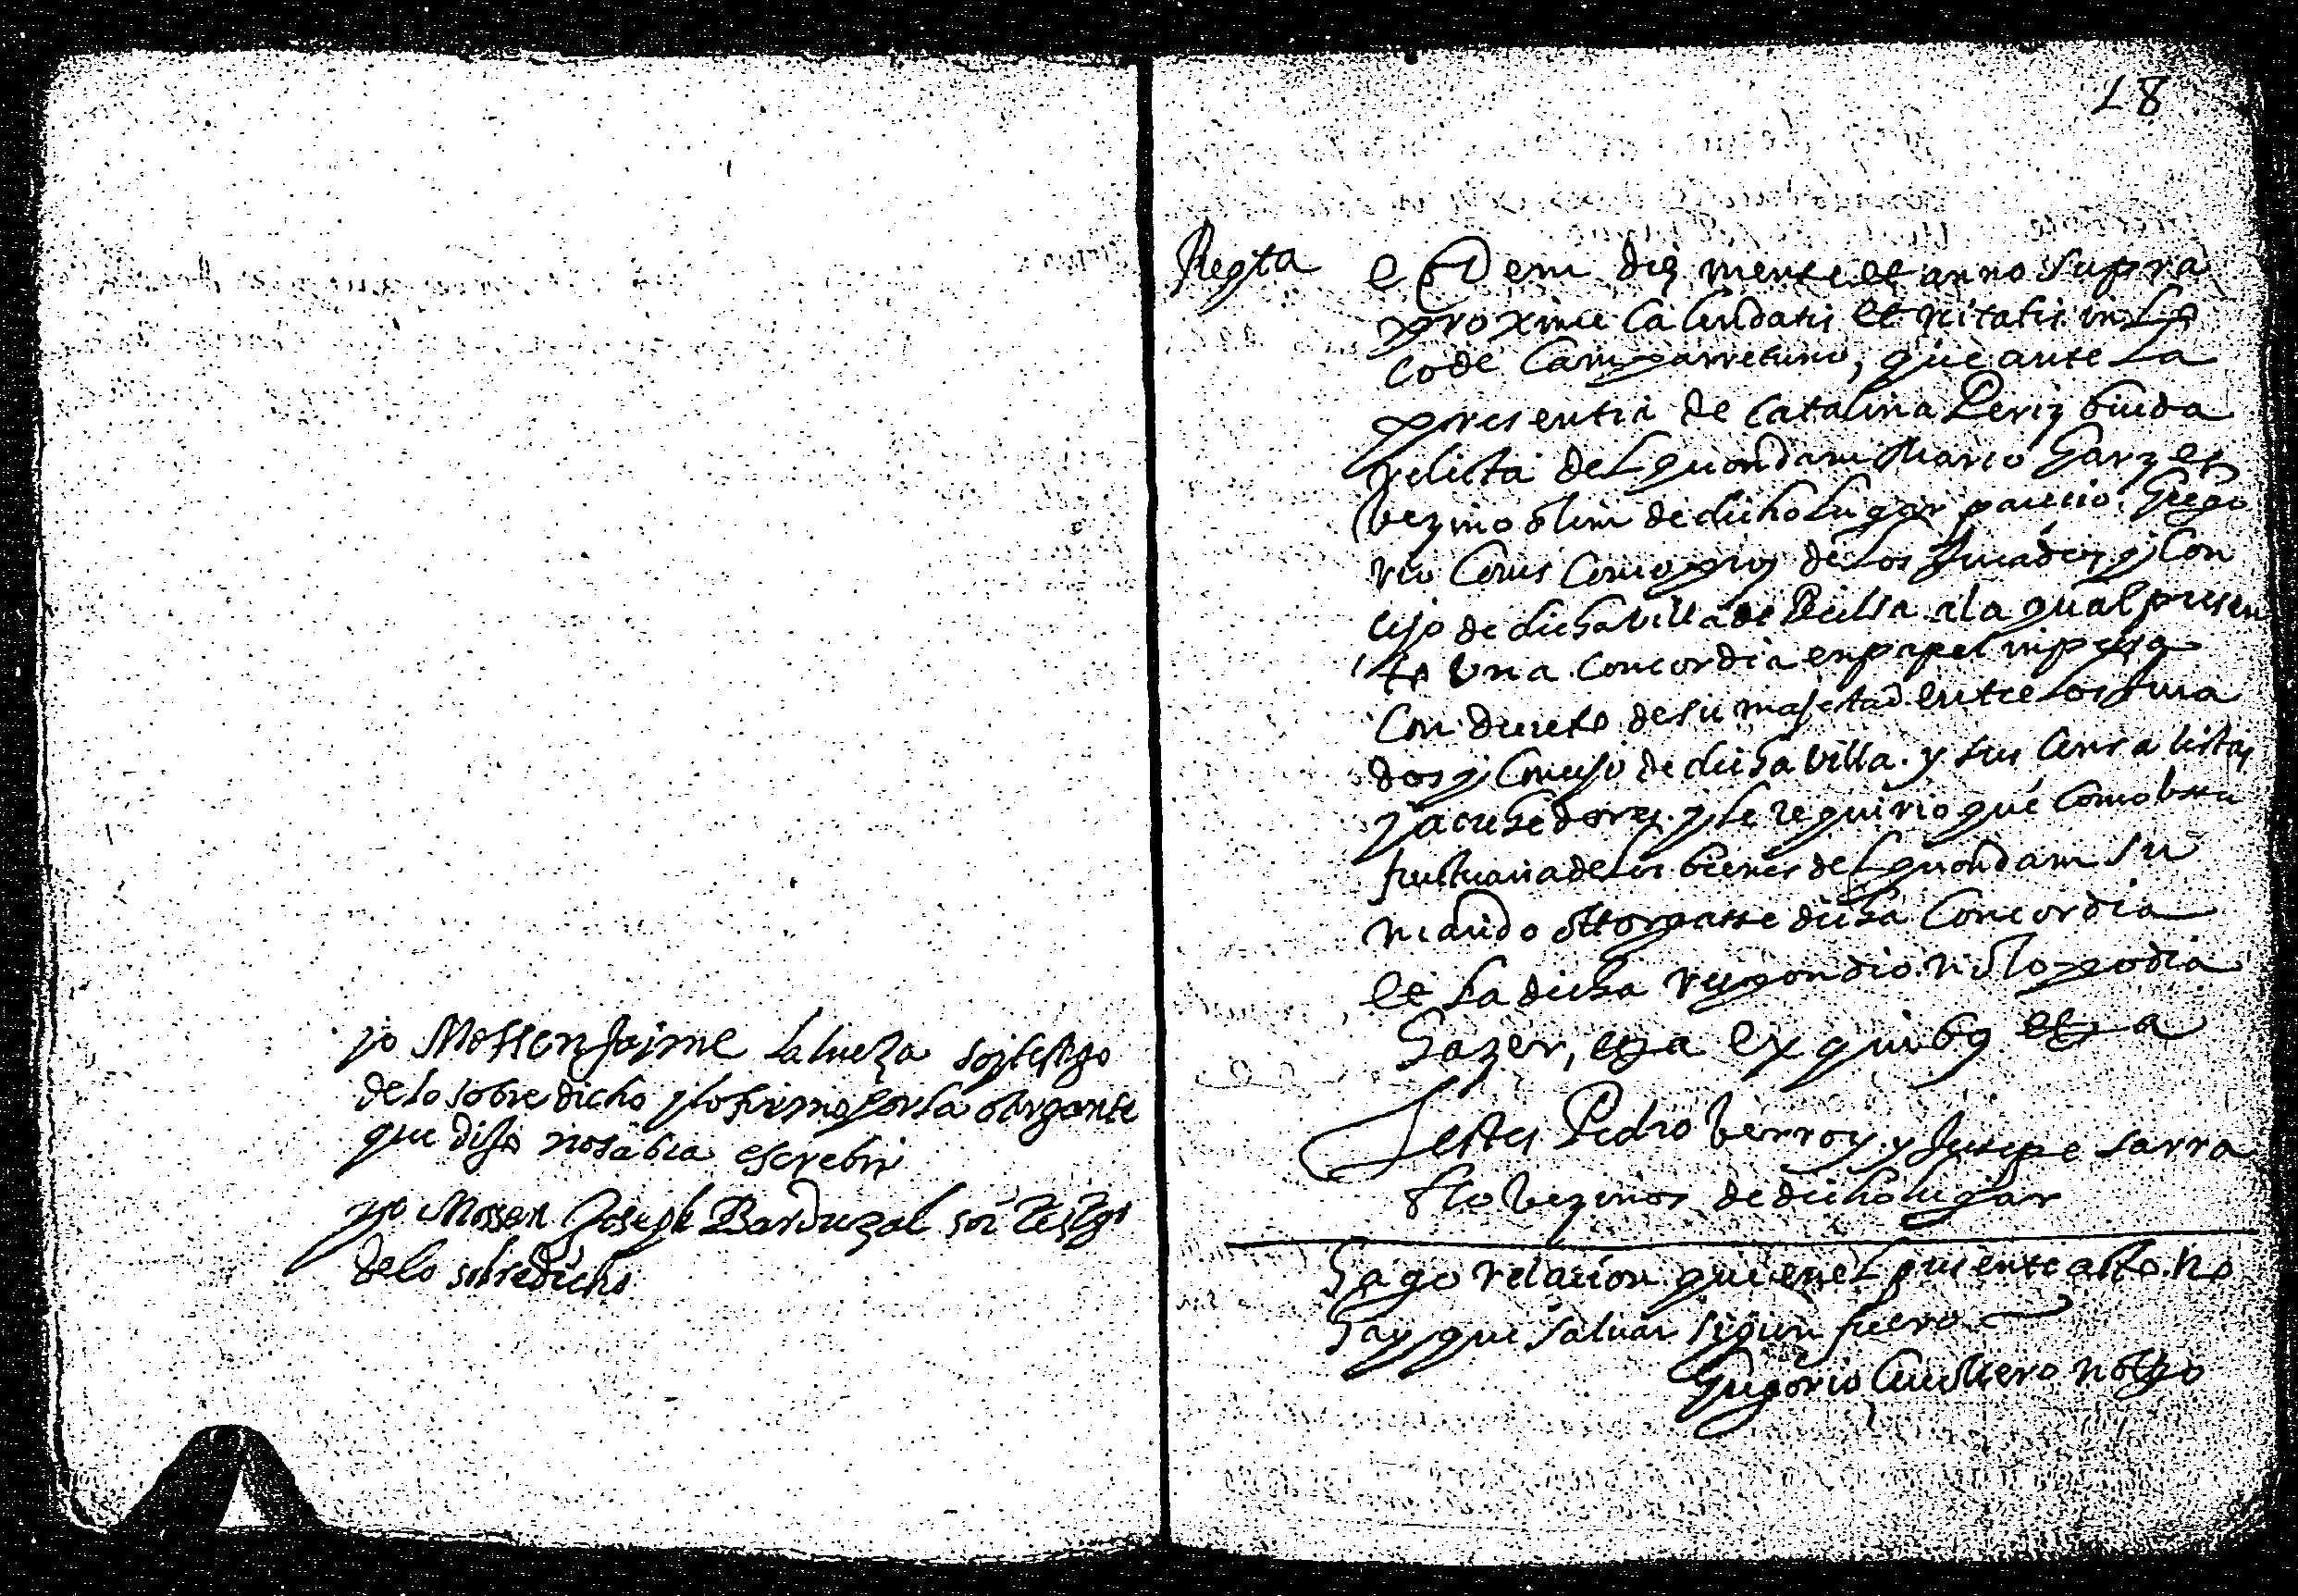 yo Mossen Jaime Lalueza soi testigo
de lo sobre dicho y lo firmo por la otorgante
que dijo no sabia escrebir
yo Mossen Joseph Barduzal soi testigo
de lo sobredicho
18
Reqta
eodem die mense et anno supra
proxime calendatis et recitatis in Lo
co de Camporretuno, que ante La
presentia de Catalina Periz biuda
relicta del quondam Marco Garzes
vezino olim de dicho lugar parecio Grego
rio como pror de los Jurados y Con
cejo de dicha villa de a la qual presen
to una concordia en papel inpreso
con decreto de su majestad entre los Jura
dos y Concejo de dicha villa y sus censalistas
y acrehedores y le requirio que como usu
fructuaria de los bienes del quondam su
marido ottorgasse dicha Concordia
et la dicha respondio no lo podia
hazer, etza ex quibus etza
Testes Pedro berroy y Jusepe sarra
blo vezinos de dicho lugar
hago relacion que en el presente acto no
hay que salvar segun fuero
Gregorio notrio